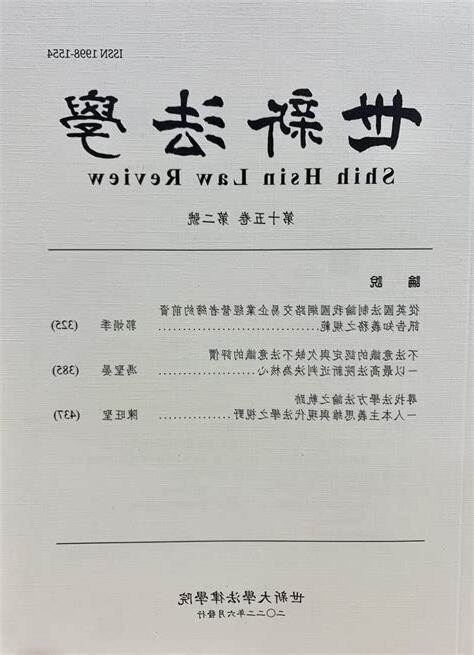 ISSN 1998-1554
世新法學
Shih Hsin Law Review
第十五卷 第二號
論 說
從英國法制論我國網路交易企業經營者締約前資
訊告知義務之規範.............................. 郭娟季 (325)
不法意識的認定與欠缺不法意識的評價
—以最高法院新近判決為核心.................... 馮聖晏 (385)
尋找法學方法論之軌跡
—人本主義思維與現代法學之視野................ 陳旺聖 (437)
世新大學法律學院
二〇二二年六月發行